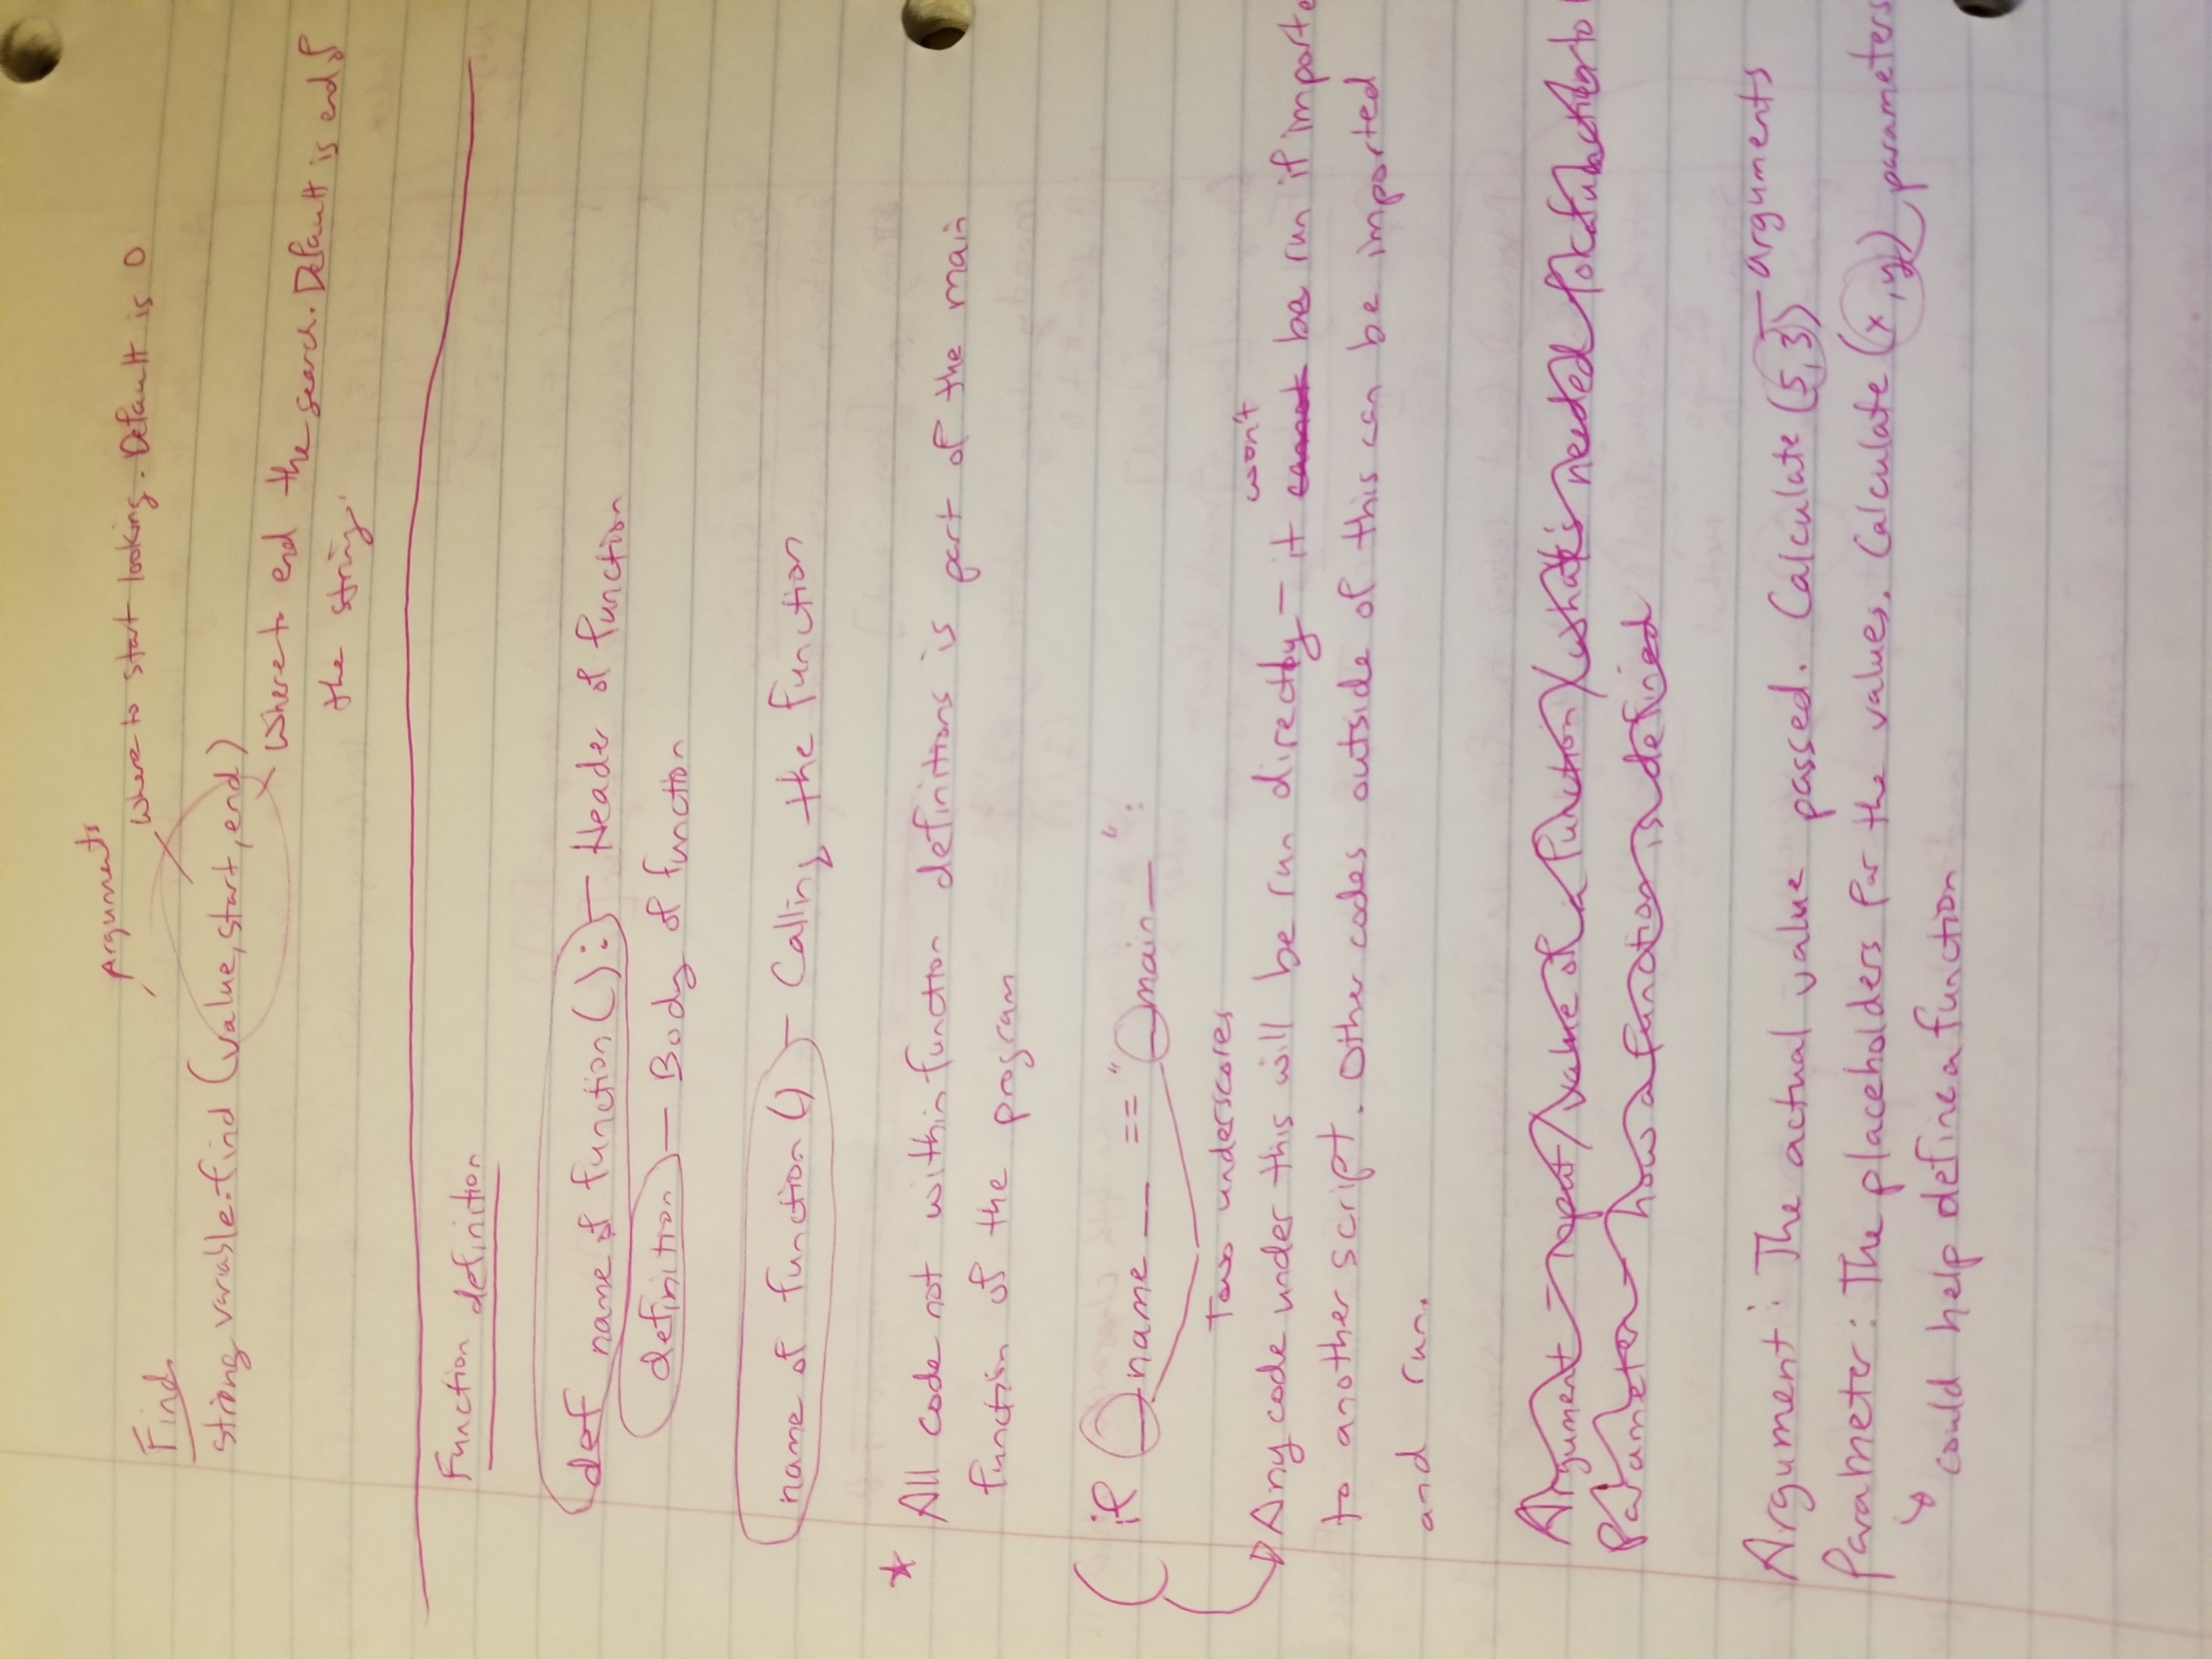 Arguments
Where to start looking. Default is 0
Find
string variable.find (value, start, end)
Where to end the search. Default is end of
the string.
Function definition
def name of function ( ) : — Header of function
definition — Body of function
name of function () — Calling the function
* All code not within function definitions is part of the main
function of the program
if __name__ == "__main__":
Two underscores
won't
Any code under this will be run directly — it cannot be run if importe
to another script. Other codes outside of this can be imported
and run.
Argument – input/value of a function/what's needed for a function to
Parameter – how a function is defined
Argument: The actual value passed. Calculate (5,3) — arguments
Parameter: The placeholders for the values. Calculate (x,y) parameters
could help define a function